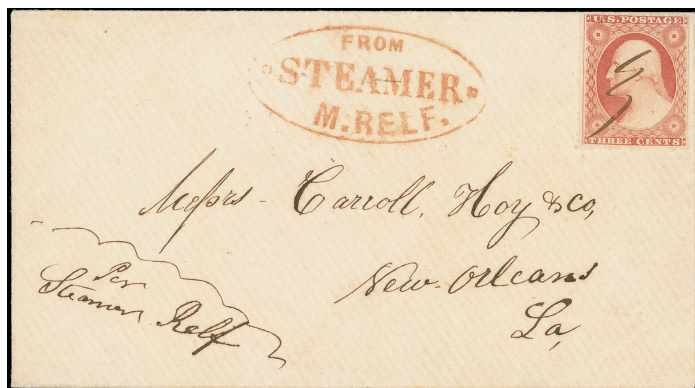 FROM
STEAMER
M. RELF.
U.S. POSTAGE
THREE CENTS
Messrs Carroll, Hoy & Co,
New Orleans
La,
Per
Steamer Relf